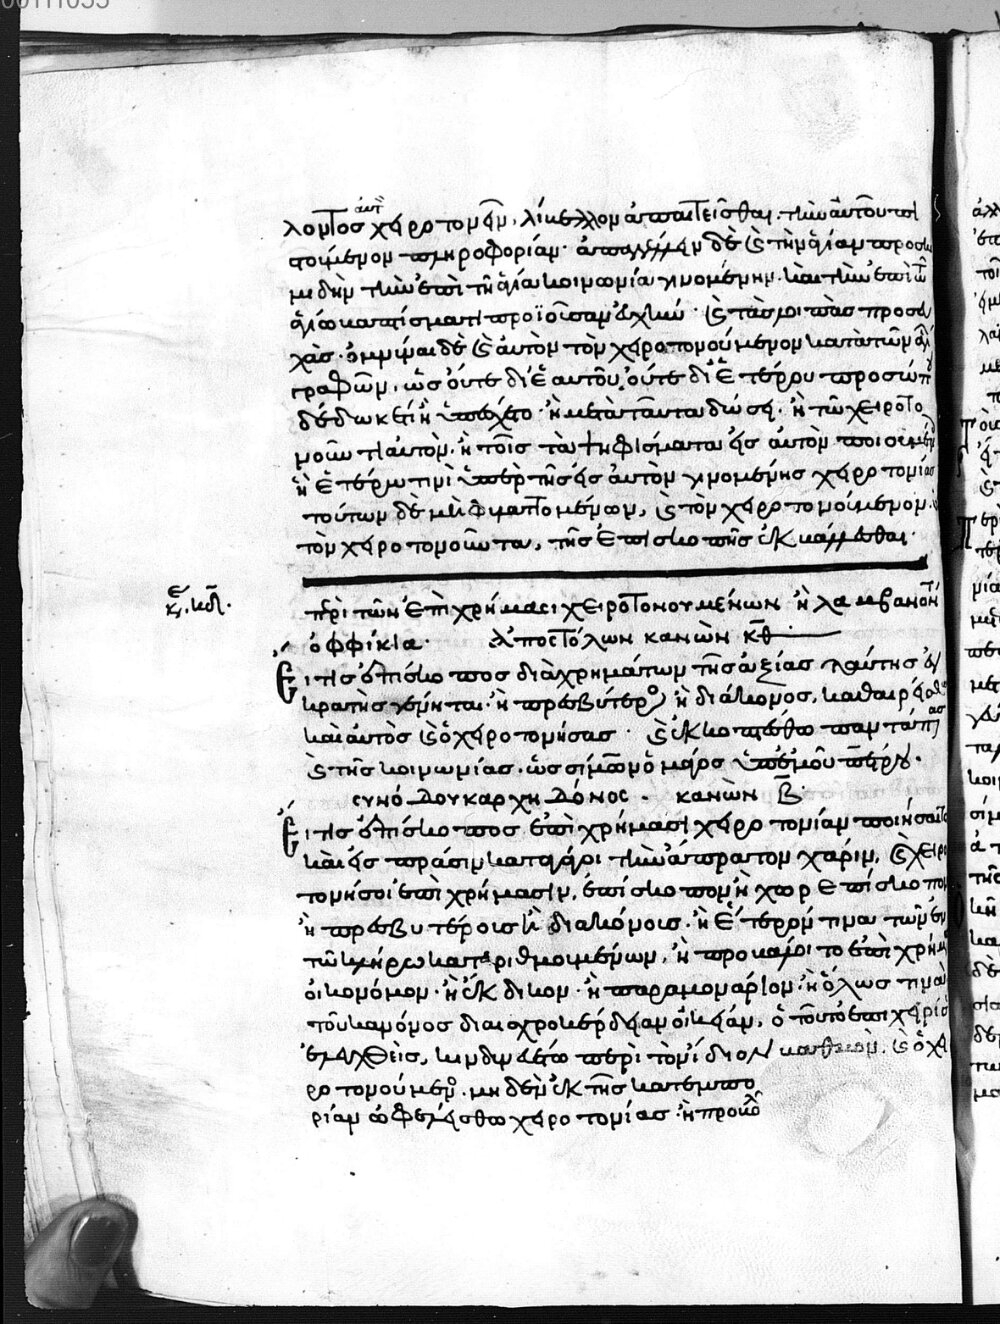 λοντος αὐτ χειροτονεῖν, λίβελλον ἀπαιτεῖσθαι. τὴν αὐτοῦ
ποιούμενον πληροφορίαν. ἀπαγγέλλειν δὲ ς τὴν ἁγίαν προσκο
μιδὴν τὴν ἐπὶ τῆ ἁγία κοινωνία γινομένην. καὶ τὴν ἐπὶ τῶ
ἁγίω βαπτίσματι προϊοῦσαν εὐχήν. ς τὰς λοιπὰς προσευ
χάς. ὀμνύναι δὲ ς αὐτὸν τὸν χειροτονούμενον κατὰ τῶν ἁγί
γραφῶν, ὡς οὔτε δι' ἑαυτοῦ, οὔτε δι' ἑτέρου προσώπ
δέδωκέ τι ἢ ὑπέσχετο. ἢ μετὰ ταῦτα δώσει. ἢ τῶ χειροτο
νοῦντι αὐτὸν. ἢ τοῖς τὰ ψηφίσματα εἰς αὐτὸν ποιουμέν
ἢ ἑτέρω τινὶ ὑπὲρ τῆς εἰς αὐτὸν γινομένης χειροτονίας
τούτων δὲ μὴ φυλαττομένων, ς τὸν χειροτονούμενον. ς
τὸν χειροτονοῦντα, τῆς ἐπισκοπῆς ἐκβάλλεσθαι.
περὶ τῶν ἐπὶ χρήμασι χειροτονουμένων ἢ λαμβανόντ
ὀφφίκια. Ἀποστόλων κανὼν κθ
Εἴ τις ἐπίσκοπος διὰ χρημάτων τῆς ἀξίας ταύτης ἐγ
κρατὴς γένηται. ἢ πρεσβύτερος ἢ διάκονος, καθαιρείσθω
καὶ αὐτὸς ς ὁ χειροτονήσας. ς ἐκκοπτέσθω παντάπασ
ς τῆς κοινωνίας. ὡς σίμων ὁ μάγος ὑπ' ἐμοῦ πέτρου.
συνόδου καρχηδόνος. κανὼν β
Εἴ τις ἐπίσκοπος ἐπὶ χρήμασι χειροτονίαν ποιήσαιτο
καὶ εἰς πράσιν καταγάγοι τὴν ἄπρατον χάριν, ς χειρο
τονήσοι ἐπὶ χρήμασιν, ἐπίσκοπον ἢ χωρεπίσκοπον
ἢ πρεσβυτέροις ἢ διακόνοις. ἢ ἕτερόν τινα τῶν ἐν
τῶ κλήρω καταριθμουμένων, ἢ προβάλοι το ἐπὶ χρήμ
οἰκονόμον. ἢ ἔκδικον. ἢ παραμονάριον. ἢ ὅλως τινὰ
τοῦ κανόνος δι' αἰσχροκέρδειαν οἰκείαν, ὁ τοῦτο ἐπιχειρήσ
ἐλεγχθεὶς, κινδυνευέτω περὶ τὸν ἴδιον βαθμόν. ς ὁ χει
ροτονούμενος. μηδὲν ἐκ τῆς κατ' ἐμπο
ρίαν ὠφελείσθω χειροτονίας. ἢ προβο